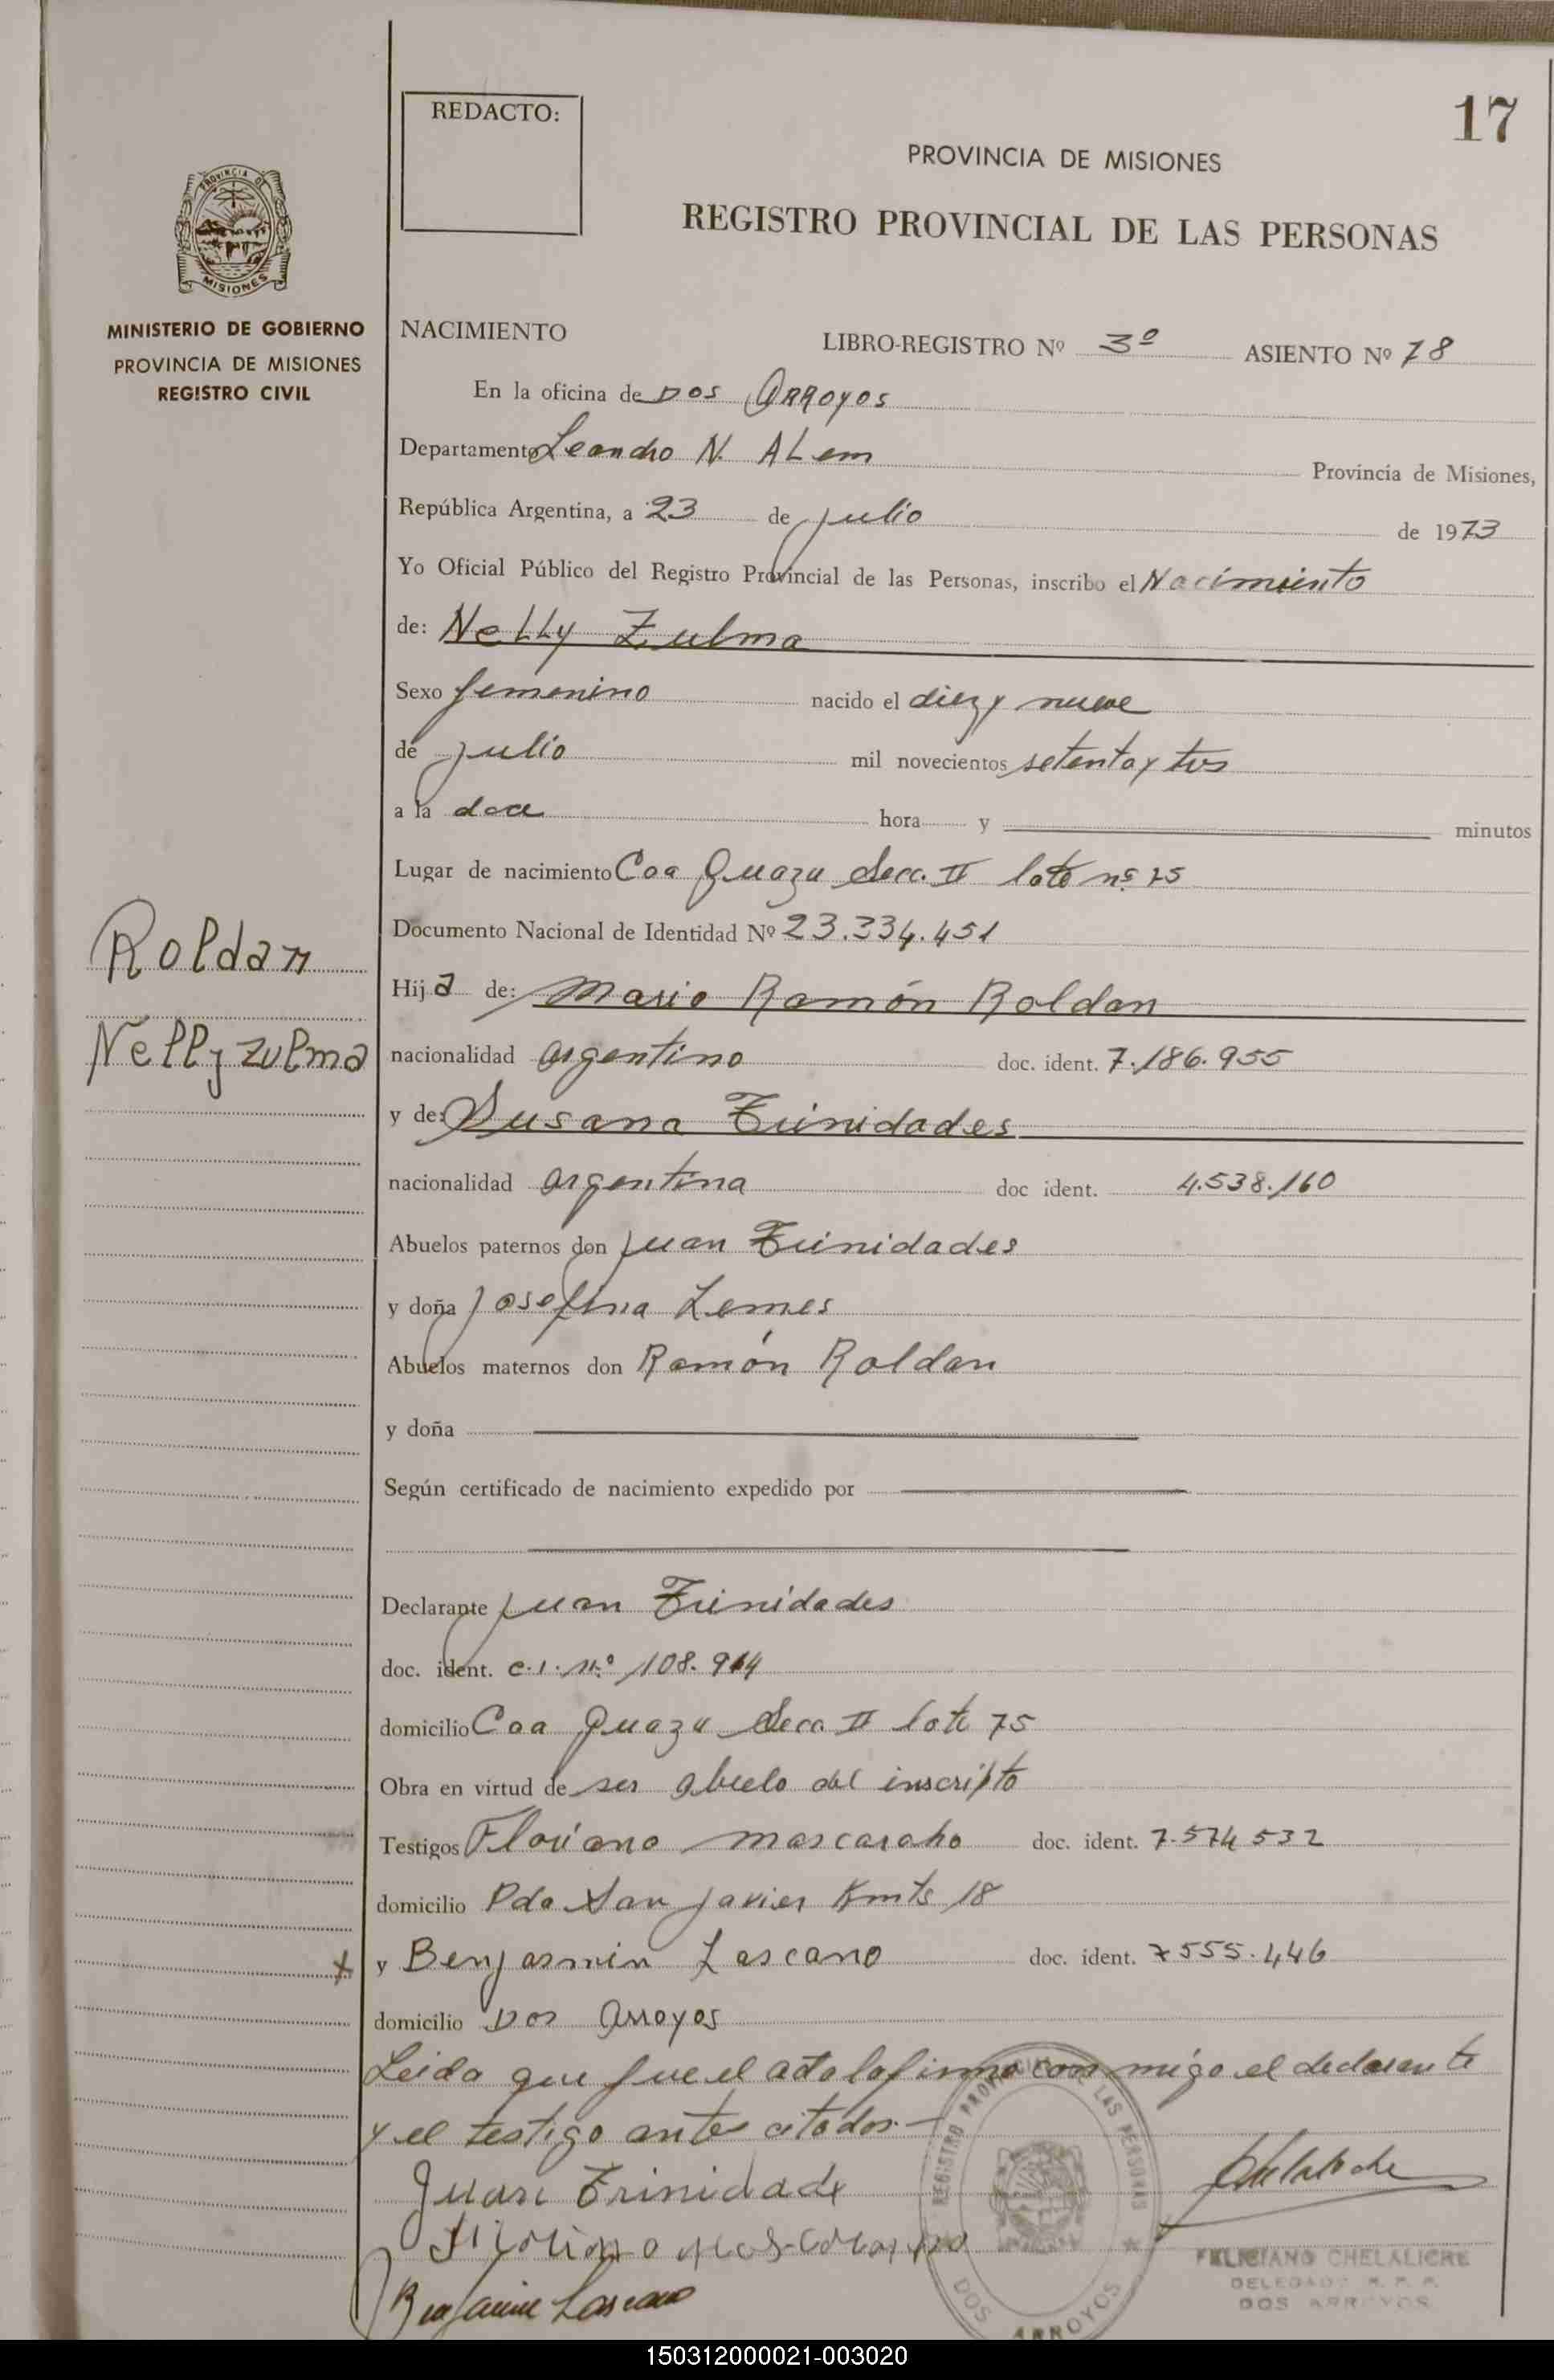 17
REDACTO:
PROVINCIA DE MISIONES
REGISTRO PROVINCIAL DE LAS PERSONAS
PROVINCIA DE
MISIONES
MINISTERIO DE GOBIERNO
PROVINCIA DE MISIONES
REGISTRO CIVIL
NACIMIENTO LIBRO-REGISTRO Nº 3º ASIENTO Nº 78
En la oficina de Dos Arroyos
Departamento Leandro N. ALem Provincia de Misiones,
República Argentina, a 23 de julio de 1973
Yo Oficial Público del Registro Provincial de las Personas, inscribo el Nacimiento
de: NeLLy Zulma
Sexo femenino nacido el diez y nueve
de julio mil novecientos setenta y tres
a la doce hora y minutos
Lugar de nacimiento Caa Guazu Secc. II lote nº 75
Documento Nacional de Identidad Nº 23.334.451
Roldan
Hija de: Mario Ramón Roldan
Nelly Zulma
nacionalidad argentino doc. ident. 7.186.955
y de: Susana Trinidades
nacionalidad argentina doc ident. 4.538.160
Abuelos paternos don Juan Trinidades
y doña Josefina Lemes
Abuelos maternos don Ramón Roldan
y doña
Según certificado de nacimiento expedido por
Declarante Juan Trinidades
doc. ident. C.I. nº 108.914
domicilio Caa Guazu Secc II lote 75
Obra en virtud de ser abuelo del inscripto
Testigos Floriano mascaraho doc. ident. 7.574 532
domicilio Pda San Javier Kmts 18
x y Benjasmin Lascano doc. ident. 7555.446
domicilio Dos Arroyos
Leida que fue el acta la firma con migo el declarante
y el testigo antes citados
Juan Trinidade
Benjamin Lascano
REGISTRO PROVINCIAL DE LAS PERSONAS
DOS ARROYOS
FELICIANO CHELALICHE
DELEGADO R. P. P.
DOS ARROYOS
150312000021-003020